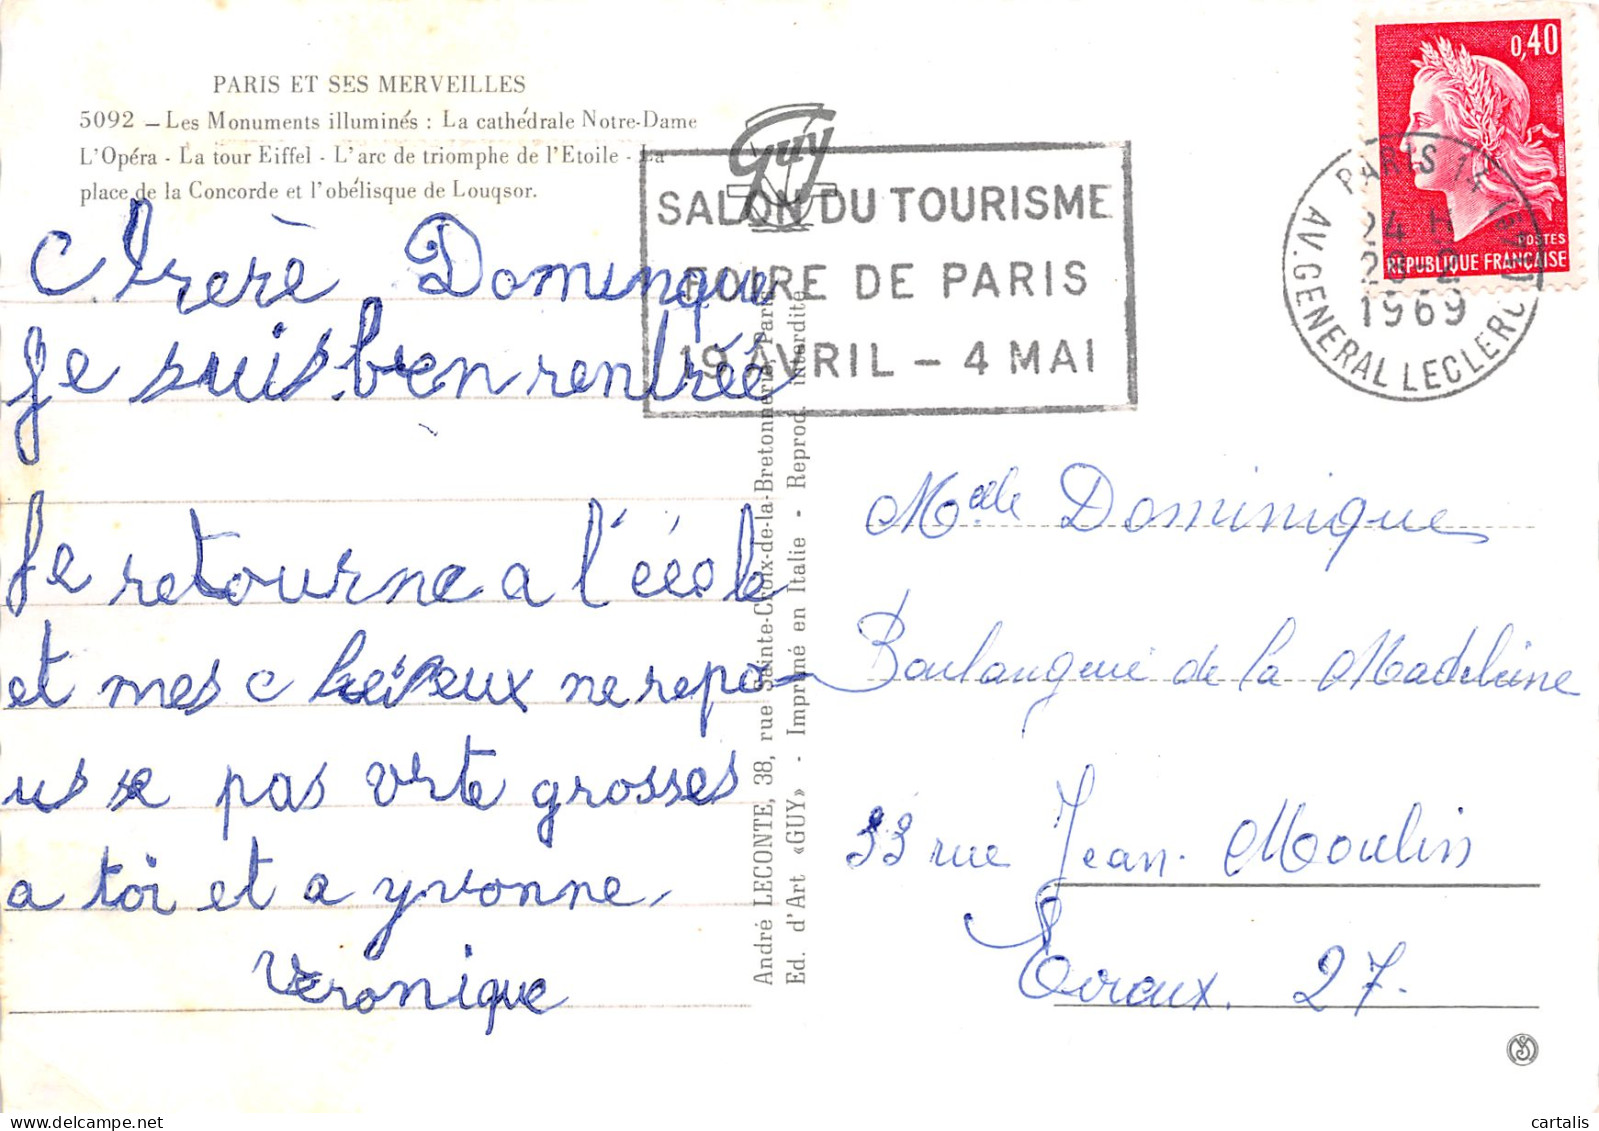 PARIS ET SES MERVEILLES
5092 – Les Monuments illuminés : La cathédrale Notre-Dame
L'Opéra - La tour Eiffel - L'arc de triomphe de l'Etoile - La
place de la Concorde et l'obélisque de Louqsor.
Guy
SALON DU TOURISME
FOIRE DE PARIS
19 AVRIL – 4 MAI
0,40
POSTES
REPUBLIQUE FRANÇAISE
PARIS
24 H
1969
AV. GENERAL LECLERC
Dominique
Je suis bien rentrée
Je retourne a l'école
et mes cheveux ne repo-
us se pas grosses
a toi et a yvonne
Veronique
André LECONTE, 38, rue Sainte-Croix-de-la-Bretonnerie, Paris
Ed. d'Art «GUY» - Imprimé en Italie - Reprod. interdite
Melle Dominique
Boulangerie de la Madeleine
33 rue Jean Moulin
Evreux. 27.
cartalis delcampe.net